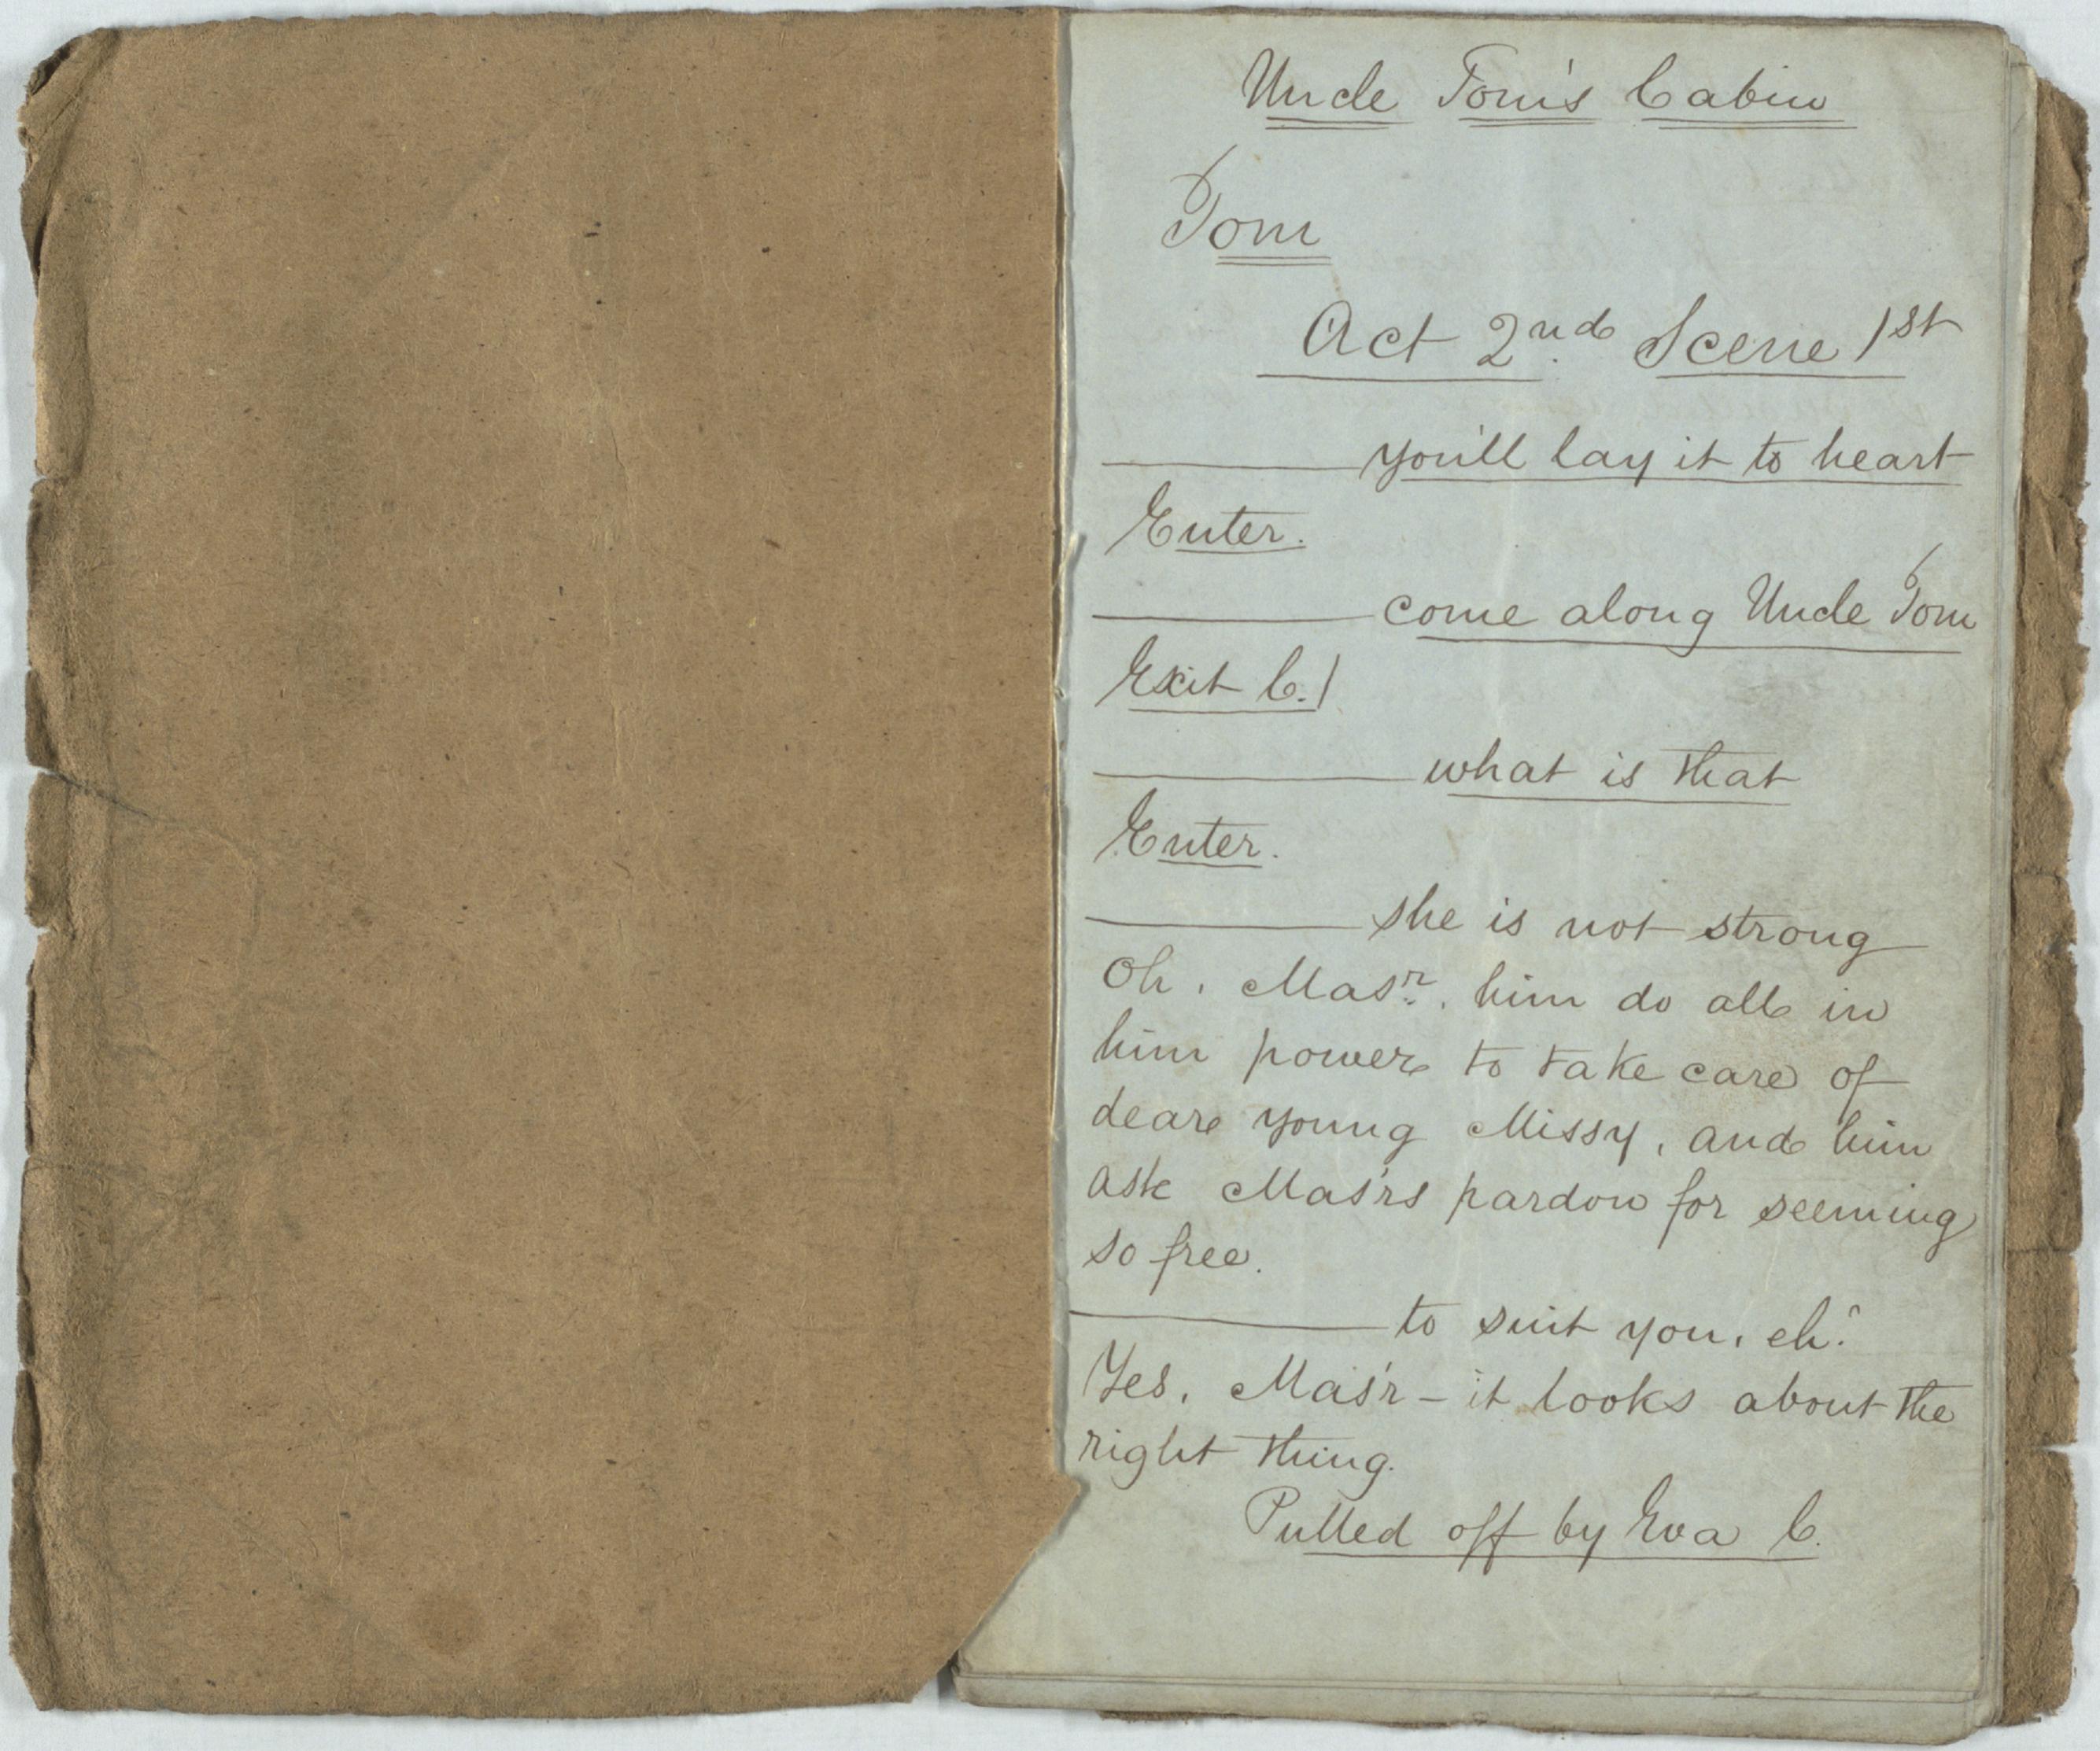 Uncle Tom's Cabin
Tom
Act 2nd. Scene 1st
——— you'll lay it to heart
Enter.
——— come along Uncle Tom
Exit C.)
——— what is that
Enter.
——— she is not strong
Oh, Masr. him do all in
him power to take care of
dear young Missy, and him
ask Mas'rs pardon for seeming
so free.
——— to suit you, eh?
Yes, Mas'r – it looks about the
right thing.
Pulled off by Eva C.